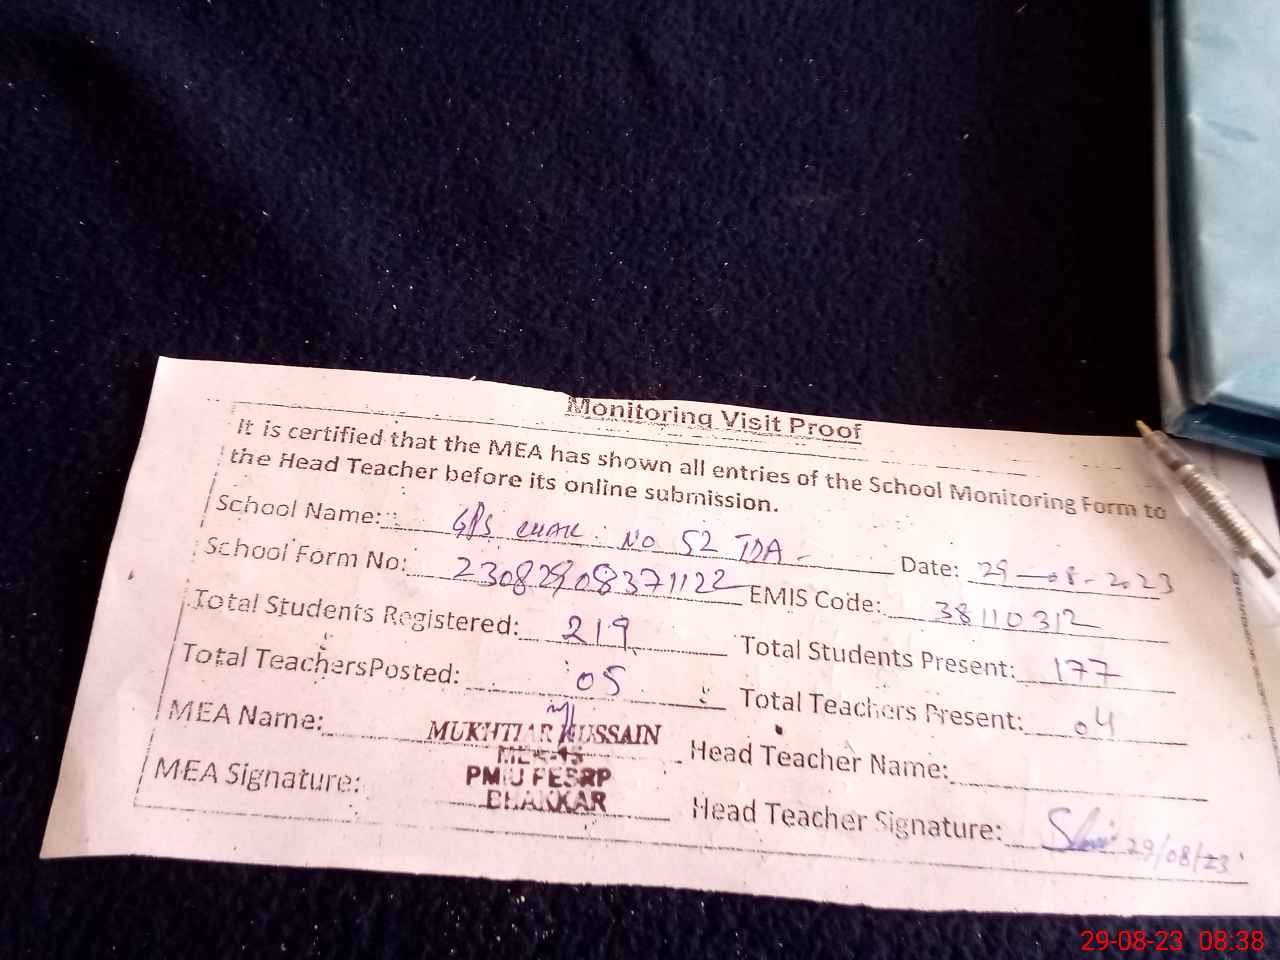 Monitoring Visit Proof
It is certified that the MEA has shown all entries of the School Monitoring Form to
the Head Teacher before its online submission.
School Name: GPS CHAK NO 52 TDA Date: 29-08-2023
School Form No: 23082908371122 EMIS Code: 38110312
Total Students Registered: 219 Total Students Present: 177
Total TeachersPosted: 05 Total Teachers Present: 04
MEA Name: MUKHTIAR HUSSAIN Head Teacher Name:
PMIU PESRP
MEA Signature: BHAKKAR Head Teacher Signature: 29/08/23
29-08-23 08:38